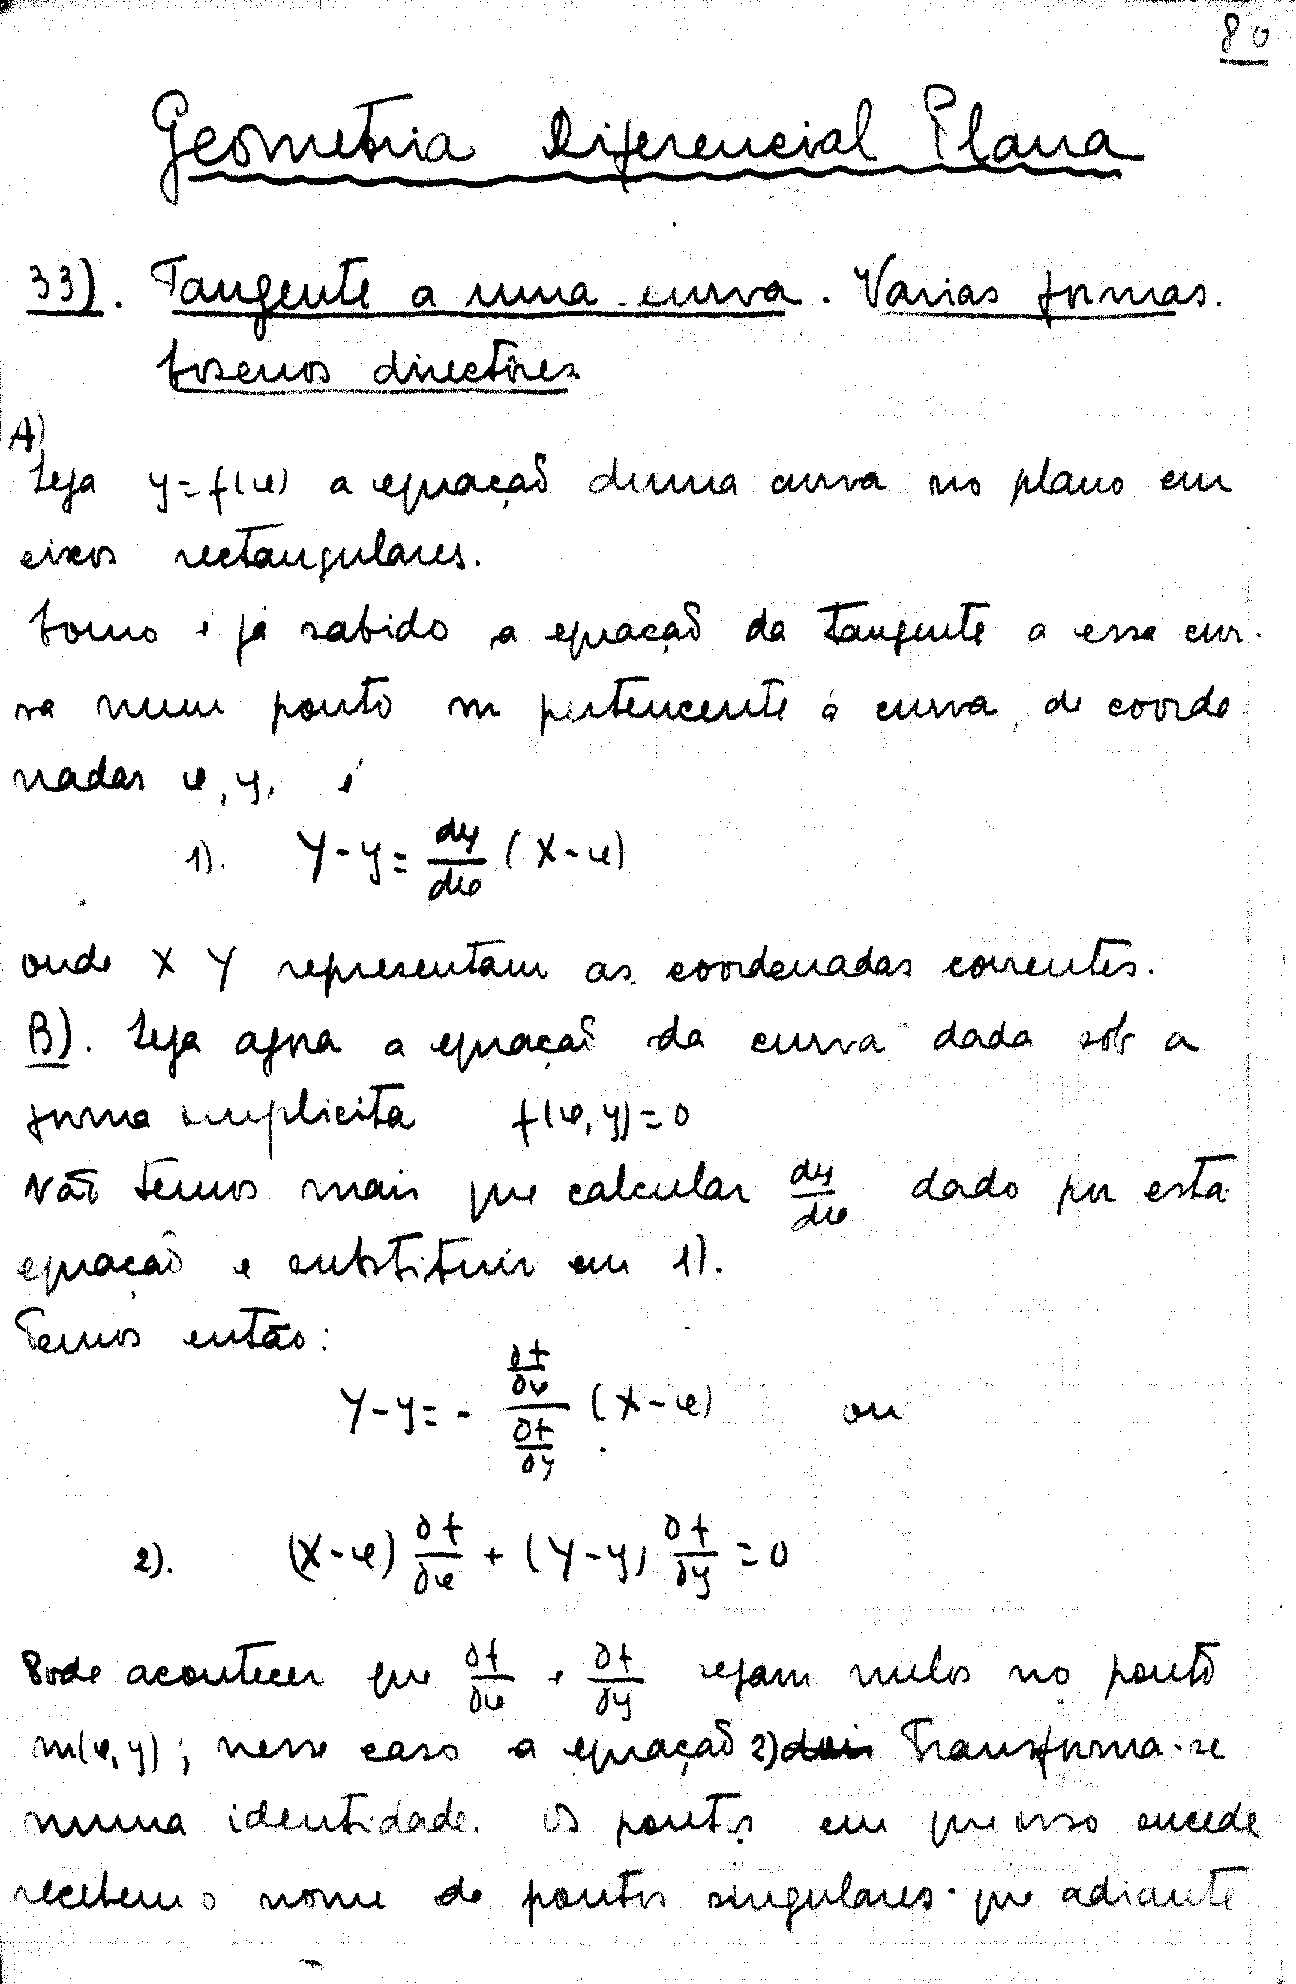 80
Geometria Diferencial Plana
33). Tangente a uma curva. Varias formas.
Cosenos directores
A)
Seja y=f(x) a equação duma curva no plano em
eixos rectangulares.
Como é já sabido a equação da tangente a essa cur-
va num ponto m pertencente á curva, de coorde
nadas x, y, é
1). Y-y = dy/dx (X-x)
onde X Y representam as coordenadas correntes.
B). Seja agora a equação da curva dada sob a
forma implicita f(x,y)=0
Não temos mais que calcular dy/dx dado por esta
equação e substituir em 1).
Temos então:
Y-y = - (∂f/∂x)/(∂f/∂y) (X-x) ou
2). (X-x) ∂f/∂x + (Y-y) ∂f/∂y = 0
Pode acontecer que ∂f/∂x e ∂f/∂y sejam nulos no ponto
m(x,y); nesse caso a equação 2) transforma-se
numa identidade. Os pontos em que isso sucede
recebem o nome de pontos singulares que adiante